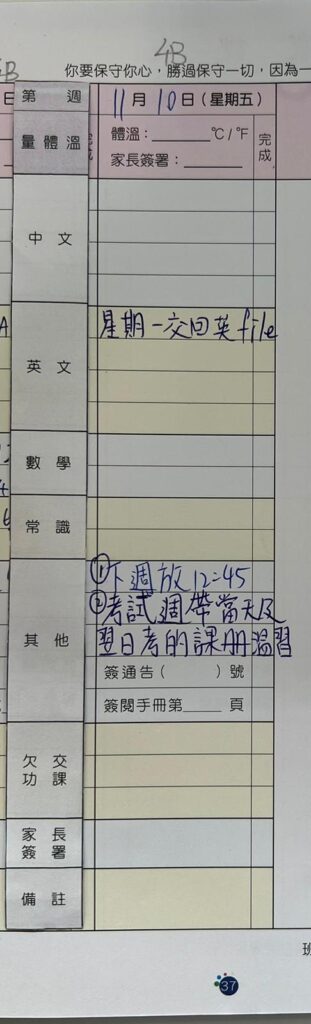 4B
你要保守你心，勝過保守一切，因為一
第 週
11月10日(星期五)
量體溫
體溫：______℃/℉
家長簽署：______
完成
中文
英文
星期一交回英file
數學
常識
其他
①下週放12:45
②考試週帶當天及
翌日考的課册溫習
簽通告( )號
簽閱手冊第____頁
欠交
功課
家長
簽署
備註
37